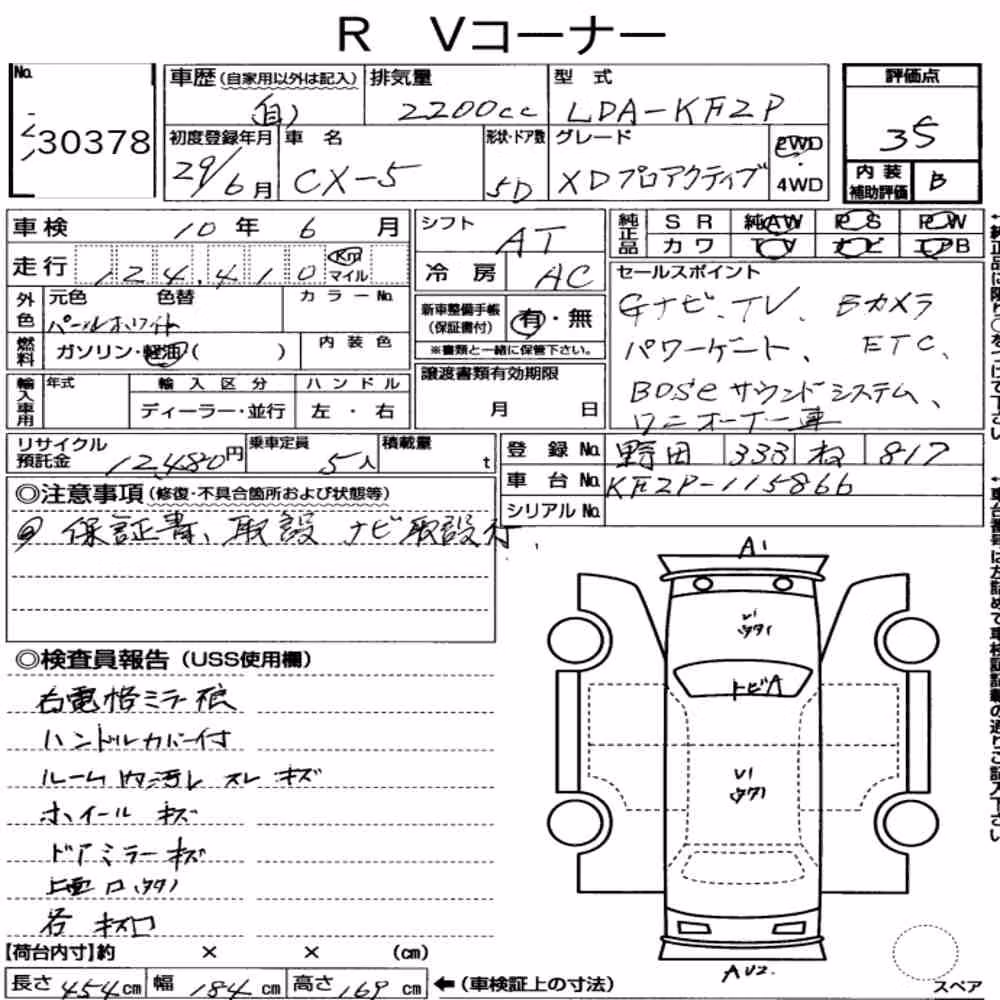 R Vコーナー
No. 30378
車歴(自家用以外は記入) 自
排気量 2200cc
型式 LDA-KF2P
評価点 35
初度登録年月 29/6月
車名 CX-5
形状・ドア数 5D
グレード XDプロアクティブ
2WD・4WD
内装補助評価 B
車検 10年 6月
シフト AT
純正品 SR 純AW PS PW
カワ TV ナビ エアB
走行 124,410 Km マイル
冷房 AC
セールスポイント
Gナビ、TV、Bカメラ
パワーゲート、ETC、
BOSEサウンドシステム、
ワンオーナー車
外色 元色 色替 カラーNo.
パールホワイト
新車整備手帳(保証書付) 有・無
※書類と一緒に保管下さい。
燃料 ガソリン・軽油( )
内装色
輸入車用 年式 輸入区分 ハンドル
ディーラー・並行 左・右
譲渡書類有効期限
月 日
リサイクル預託金 12,480円
乗車定員 5人
積載量 t
登録No. 野田 333 ね 817
車台No. KF2P-115866
シリアルNo.
◎注意事項(修復・不具合箇所および状態等)
保証書、取説 ナビ取説付
◎検査員報告(USS使用欄)
右電格ミラー
ハンドルカバー付
ルーム内汚れ スレ キズ
ホイール キズ
ドアミラーキズ
各 キズ
A1
トビA
AU2
【荷台内寸】約 × × (cm)
長さ 454cm 幅 184cm 高さ 169cm ←(車検証上の寸法)
スペア
↑純正品に限り○をつけて下さい
↑車台番号は左詰めで車検証記載の通りご記入下さい